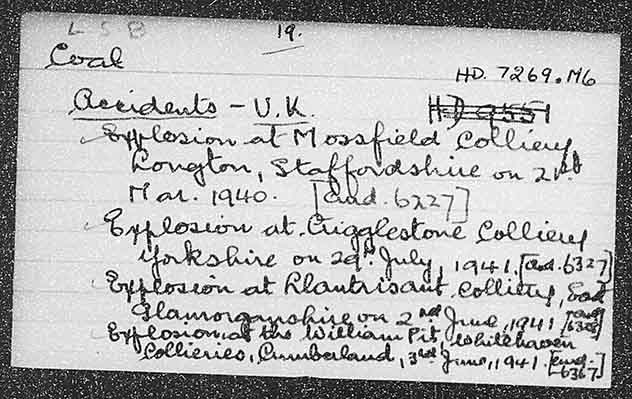 L S B 19.
Coal
HD. 7269. M6
Accidents - U.K. HD 9551
Explosion at Mossfield Colliery
Longton, Staffordshire on 21st
Mar. 1940. [Cmd. 6227]
Explosion at Crigglestone Colliery
Yorkshire on 29th July, 1941. [Cmd. 6327]
Explosion at Llantrisant Colliery, East
Glamorganshire on 2nd June, 1941 [Cmd
Explosion at the William Pit, Whitehaven
Collieries, Cumberland, 3rd June, 1941. [Cmd.
6367]